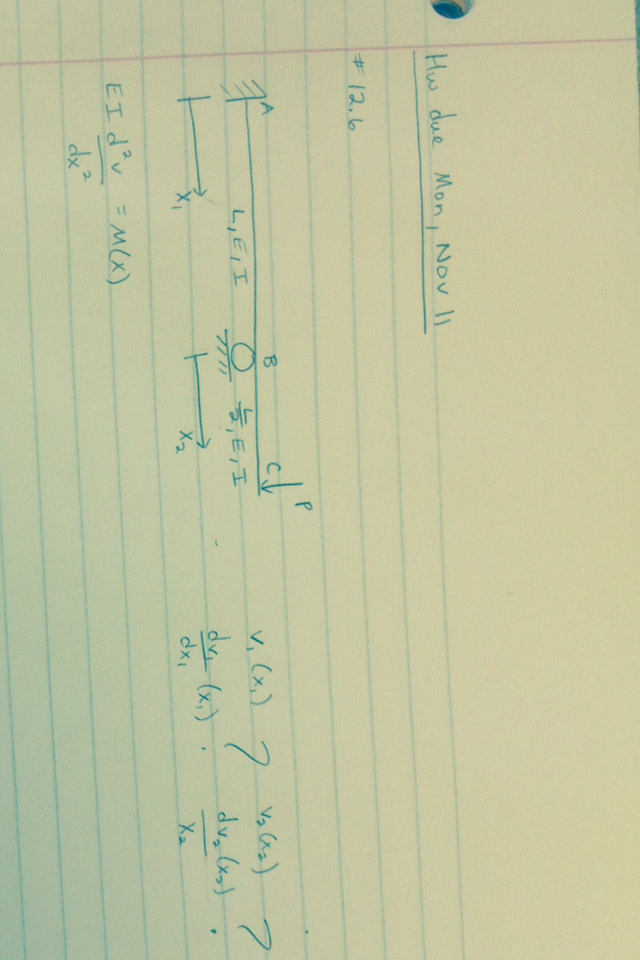 Hw due Mon, Nov 11
# 12.6
A B C P
L, E, I L/2, E, I
x₁ x₂
v₁(x₁) ? v₂(x₂) ?
dv₁/dx₁ (x₁) dv₂/x₂ (x₂)
EI d²v/dx² = M(x)